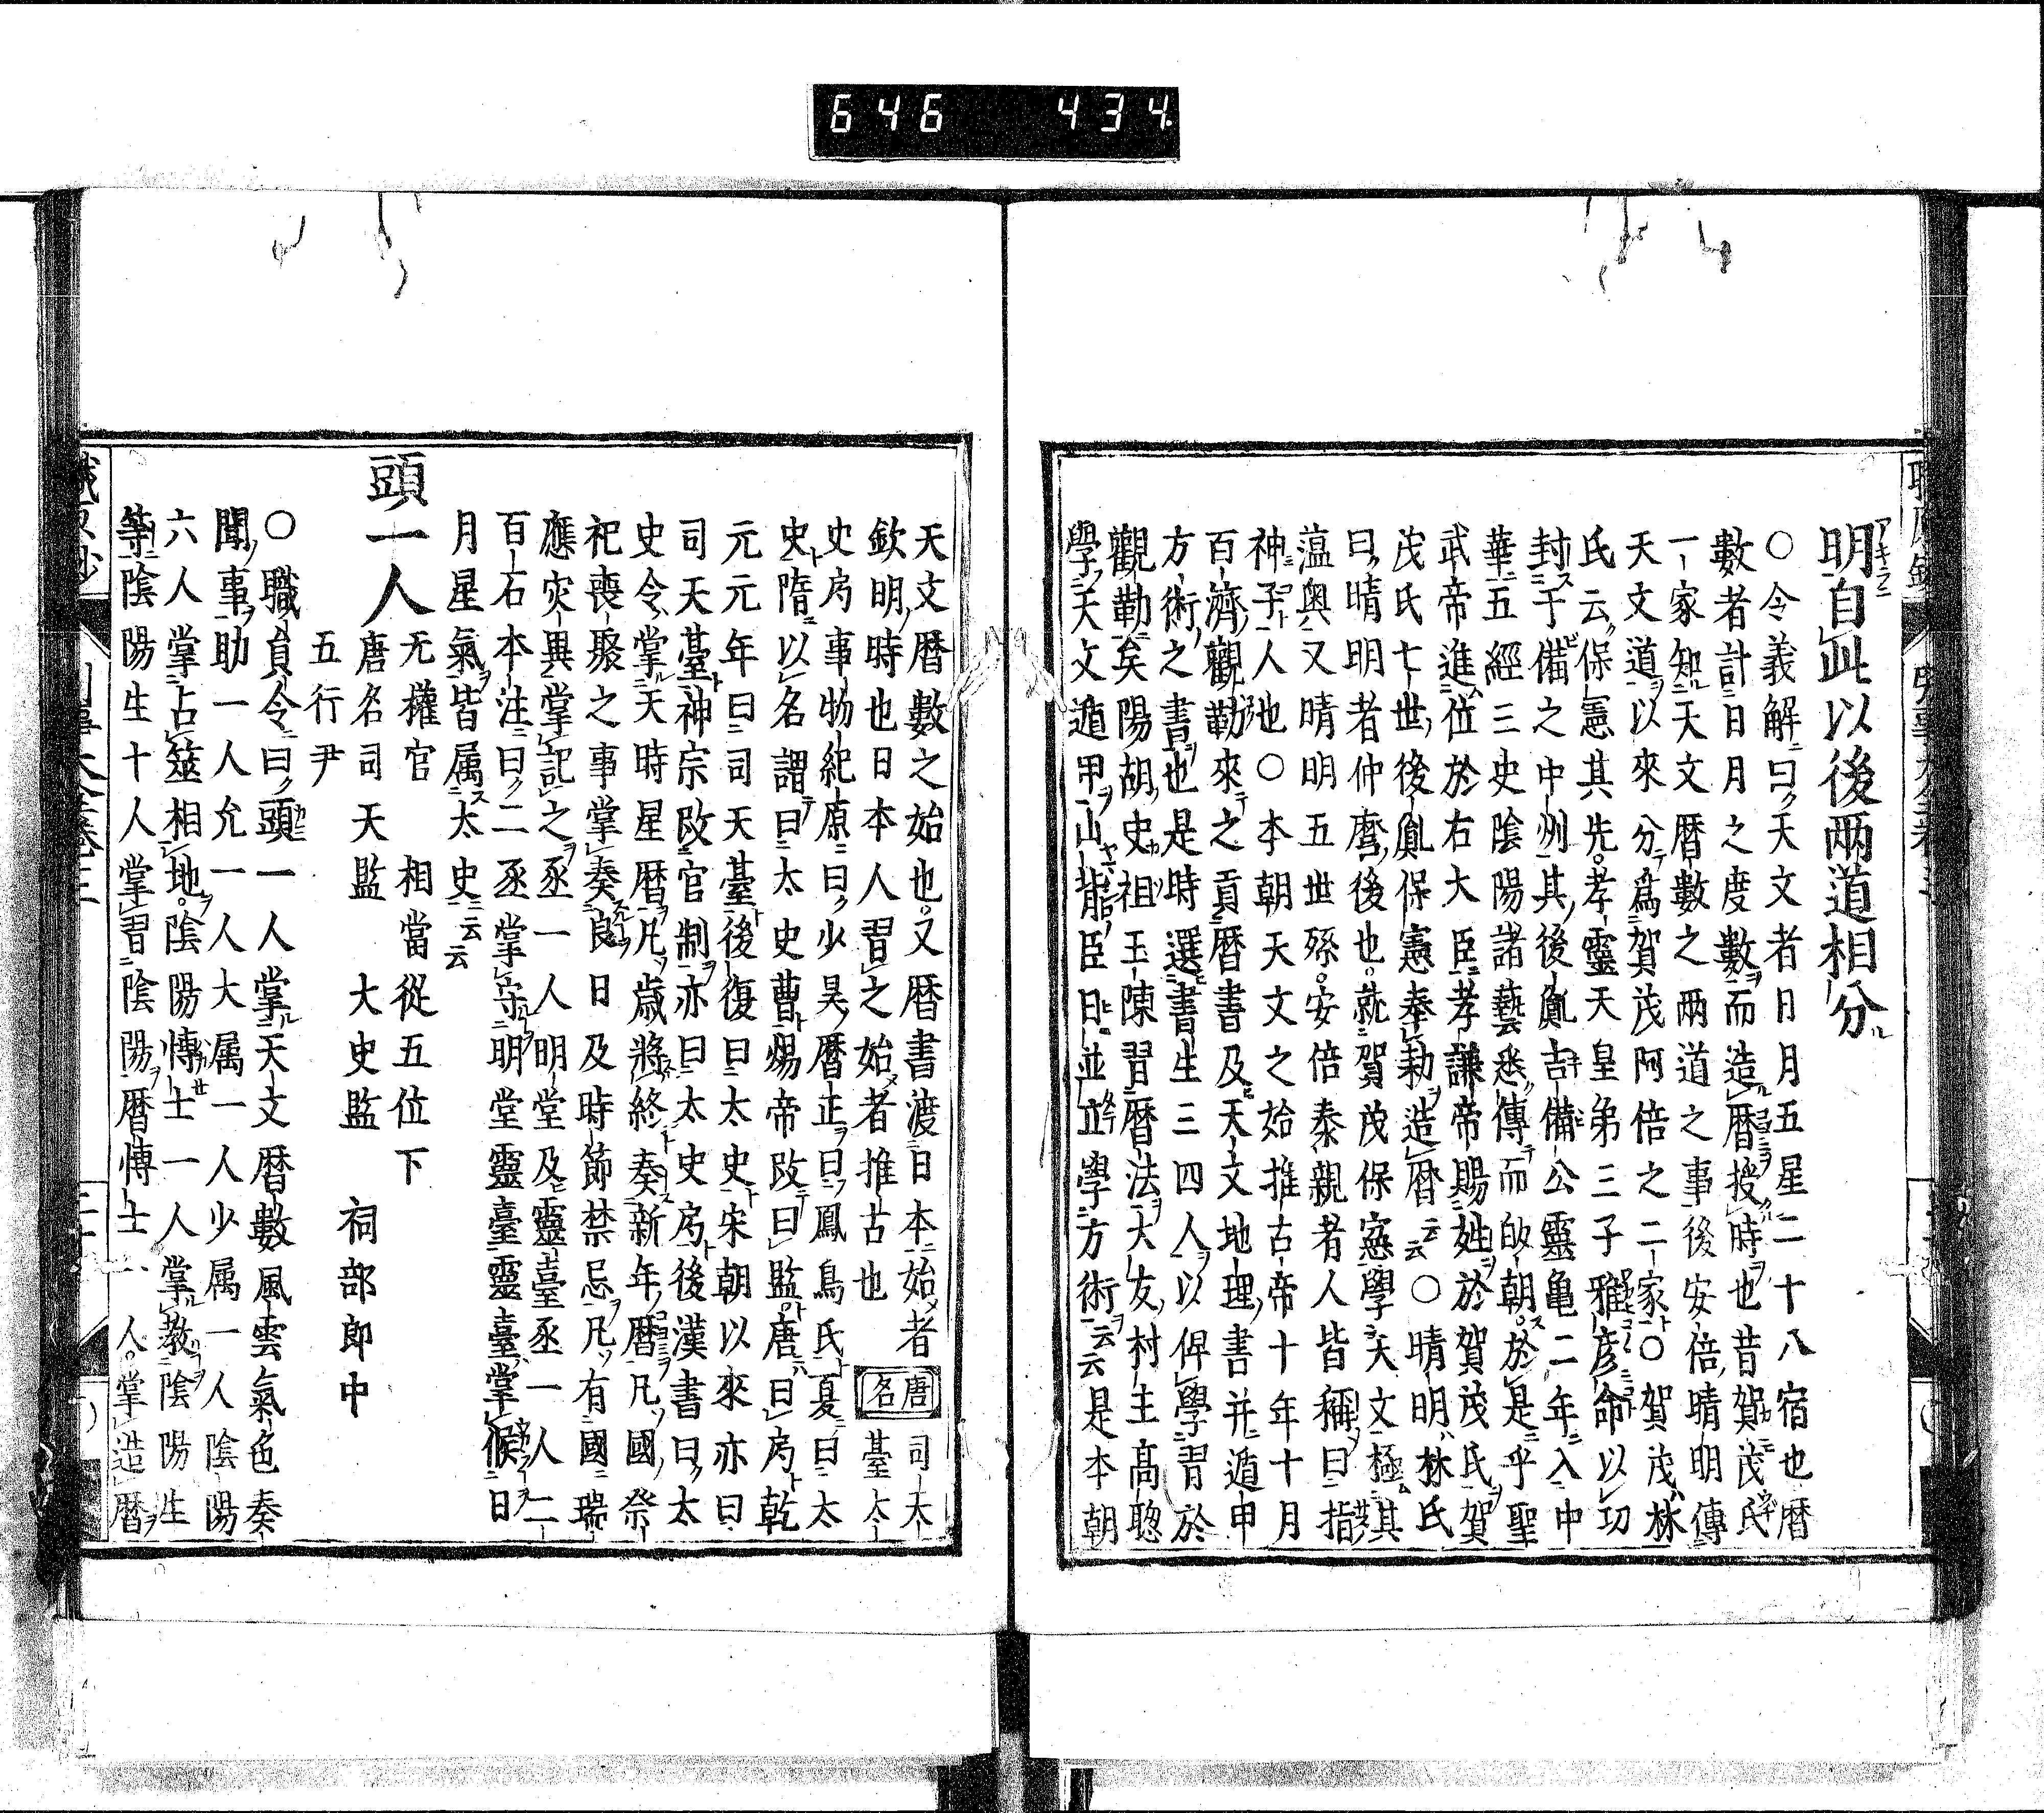 646 434
明自此以後兩道相分
○令義解曰天文者日月五星二十八宿也暦
數者計日月之度數而造暦授時也昔賀茂氏
一家知天文暦數之兩道之事後安倍晴明傳
天文道以來分爲賀茂阿倍之二家○賀茂林
氏云保憲其先孝靈天皇弟三子雅彦命以功
封于備之中州其後胤吉備公靈亀二年入中
華五經三史陰陽諸藝悉傳而皈朝於是乎聖
武帝進位於右大臣孝謙帝賜姓於賀茂氏賀
茂氏七世後胤保憲奉勅造暦云云○晴明林氏
曰晴明者仲麿後也就賀茂保憲學天文極其
薀奥又晴明五世孫安倍泰親者人皆稱曰指
神子人也○本朝天文之始推古帝十年十月
百濟觀勒來之貢暦書及天文地理書并遁甲
方術之書也是時選書生三四人以俾學習於
觀勒矣陽胡史祖玉陳習暦法大友村主高聰
學天文遁甲山背臣日並立學方術云云是本朝
天文暦數之始也又暦書渡日本始者
欽明時也日本人習之始者推古也
唐名
司天臺太
史局事物紀原曰少昊暦正曰鳳鳥氏夏曰太
史隋以名謂曰太史曹煬帝改曰監唐曰局乾
元元年曰司天臺後復曰太史宋朝以來亦曰
司天臺神宗改官制亦曰太史局後漢書曰太
史令掌天時星暦凡歳將終奏新年暦凡國祭
祀喪聚之事掌奏良日及時節禁忌凡有國瑞
應灾異掌記之丞一人明堂及靈臺丞一人二
百石本注曰二丞掌守明堂靈臺靈臺掌候日
月星氣皆属太史云云
頭一人
无權官 相當從五位下
唐名司天監 大史監 祠部郎中
五行尹
○職員令曰頭一人掌天文暦數風雲氣色奏
聞事助一人允一人大属一人少属一人陰陽
六人掌占筮相地陰陽愽士一人掌教陰陽生
等陰陽生十人掌習陰陽暦愽士一人掌造暦